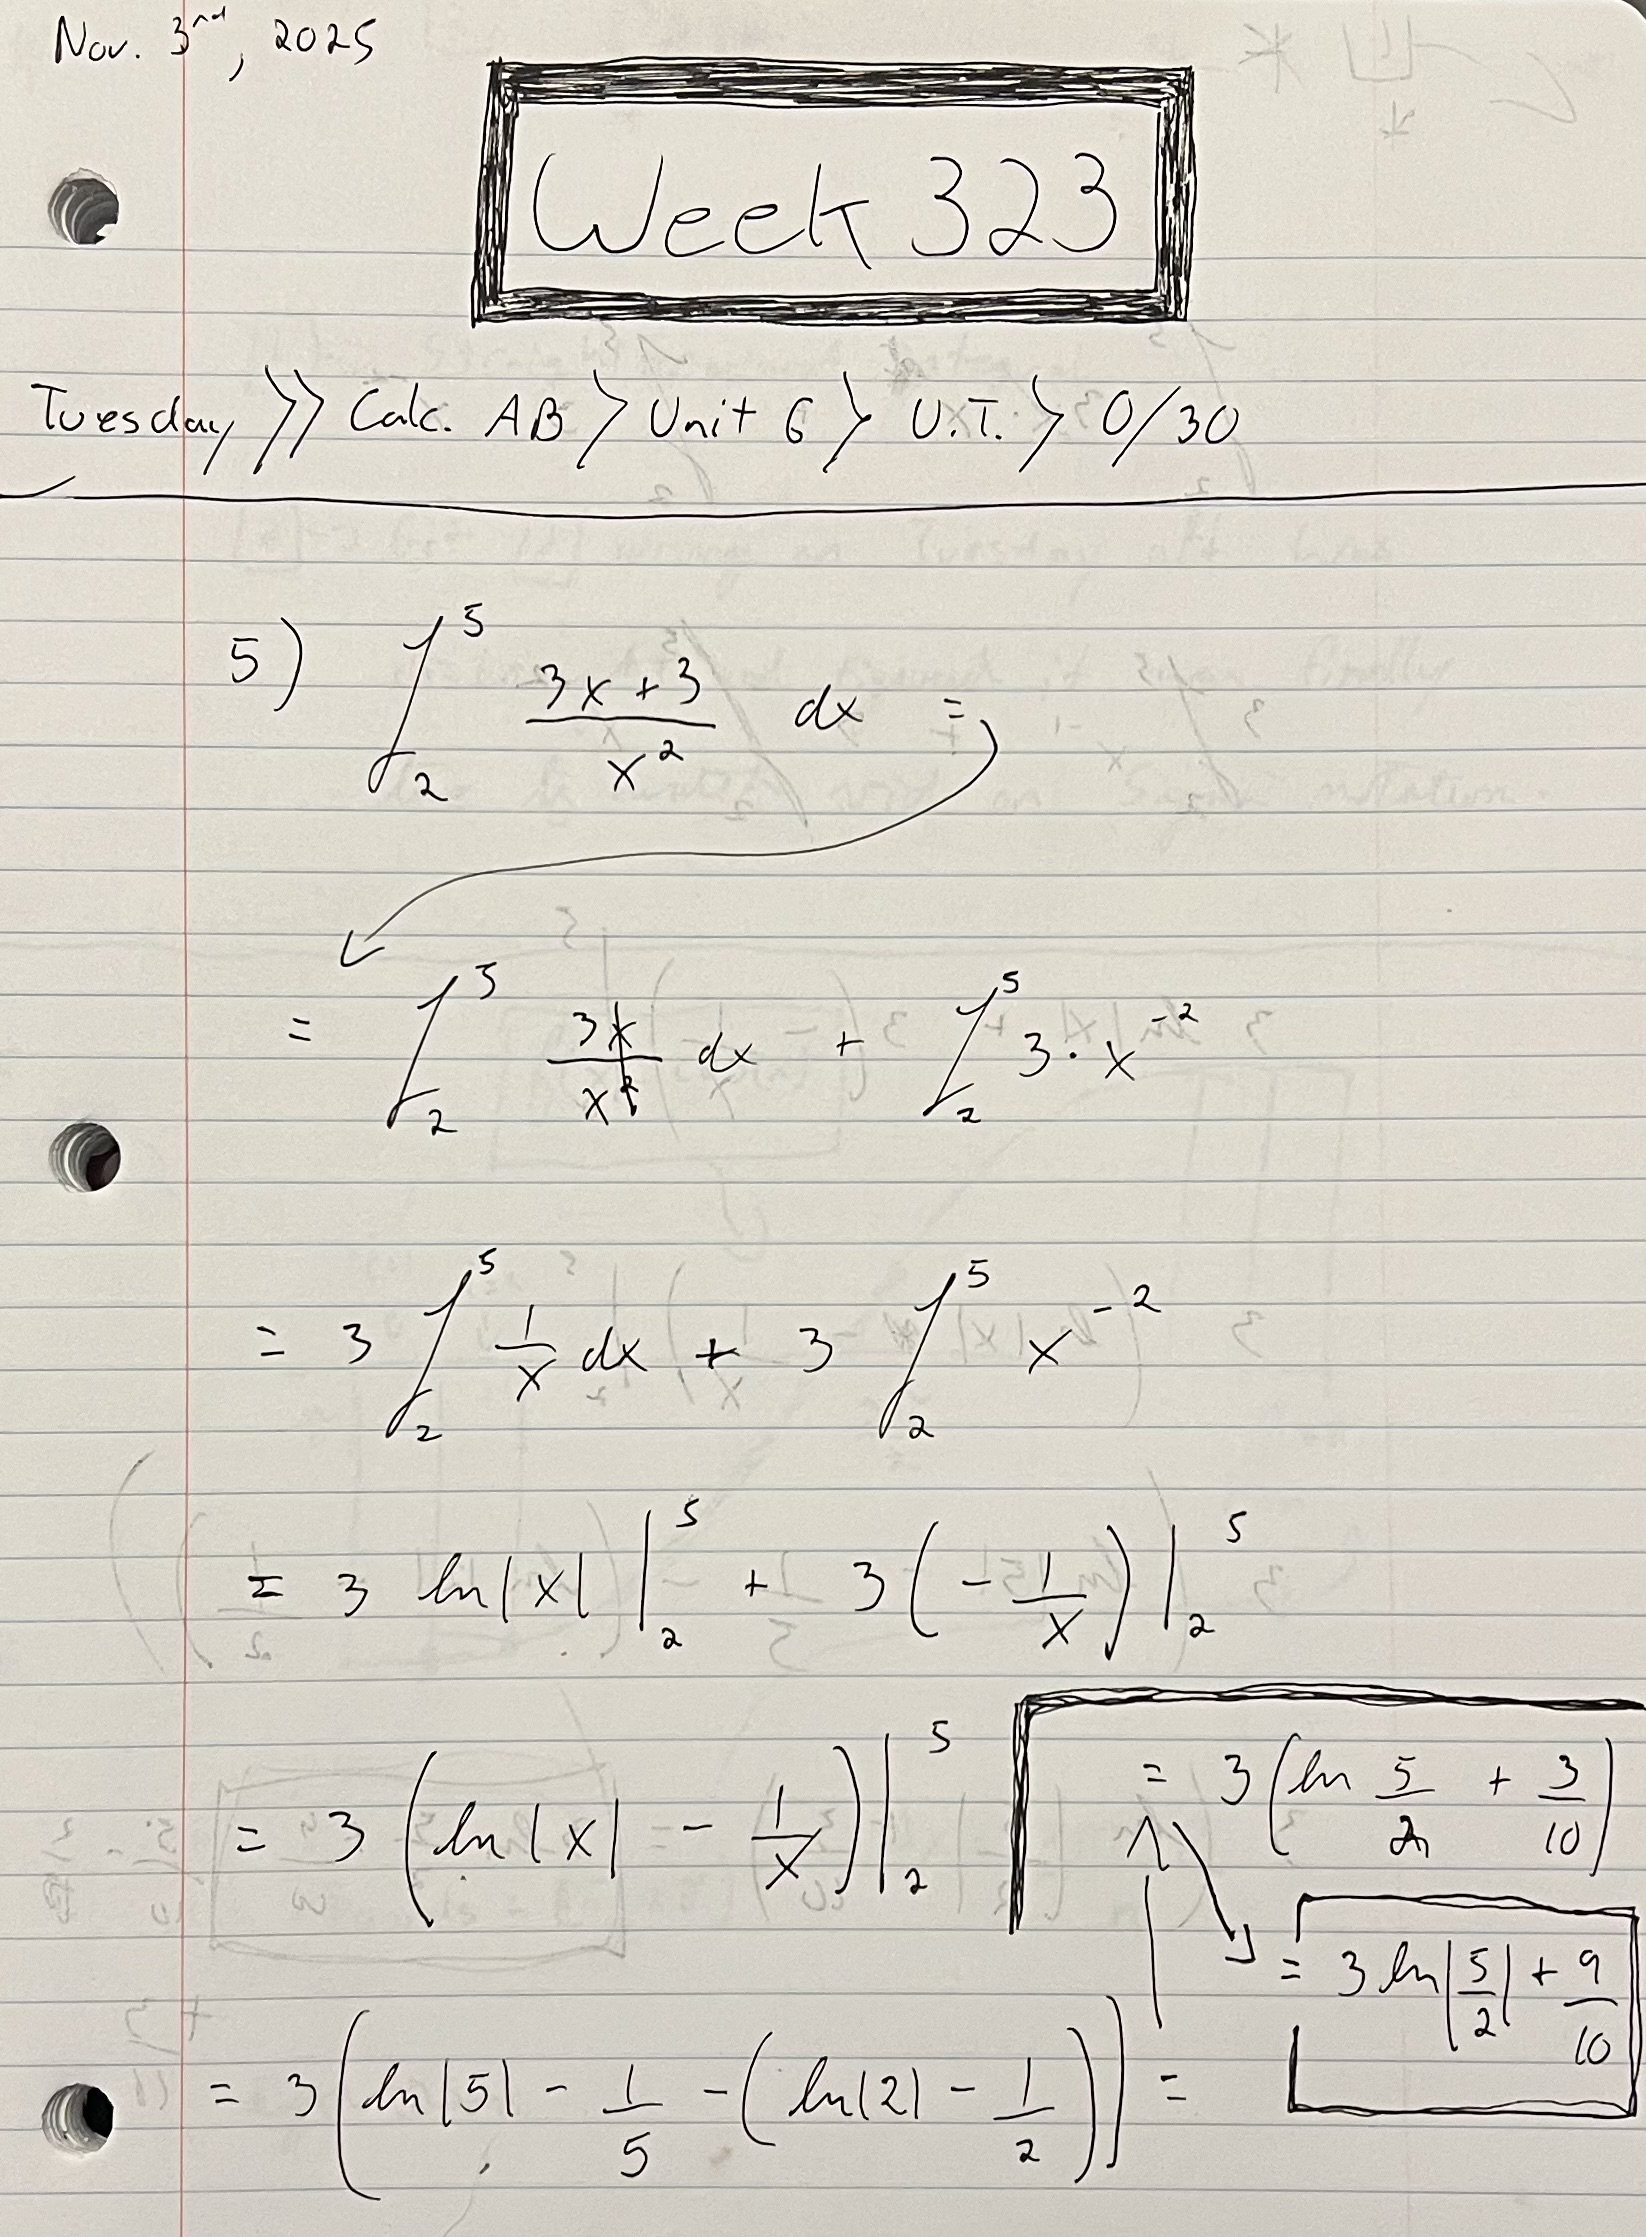 Nov. 3rd, 2025
Week 323
Tuesday >> Calc. AB > Unit 6 > U.T. > 0/30
5) ∫₂⁵ (3x + 3)/x² dx =
= ∫₂⁵ 3x/x² dx + ∫₂⁵ 3 · x⁻²
= 3 ∫₂⁵ 1/x dx + 3 ∫₂⁵ x⁻²
= 3 ln|x| |₂⁵ + 3(-1/x) |₂⁵
= 3 (ln|x| - 1/x) |₂⁵
= 3 (ln|5| - 1/5 - (ln|2| - 1/2)) =
= 3 (ln 5/2 + 3/10)
= 3 ln|5/2| + 9/10